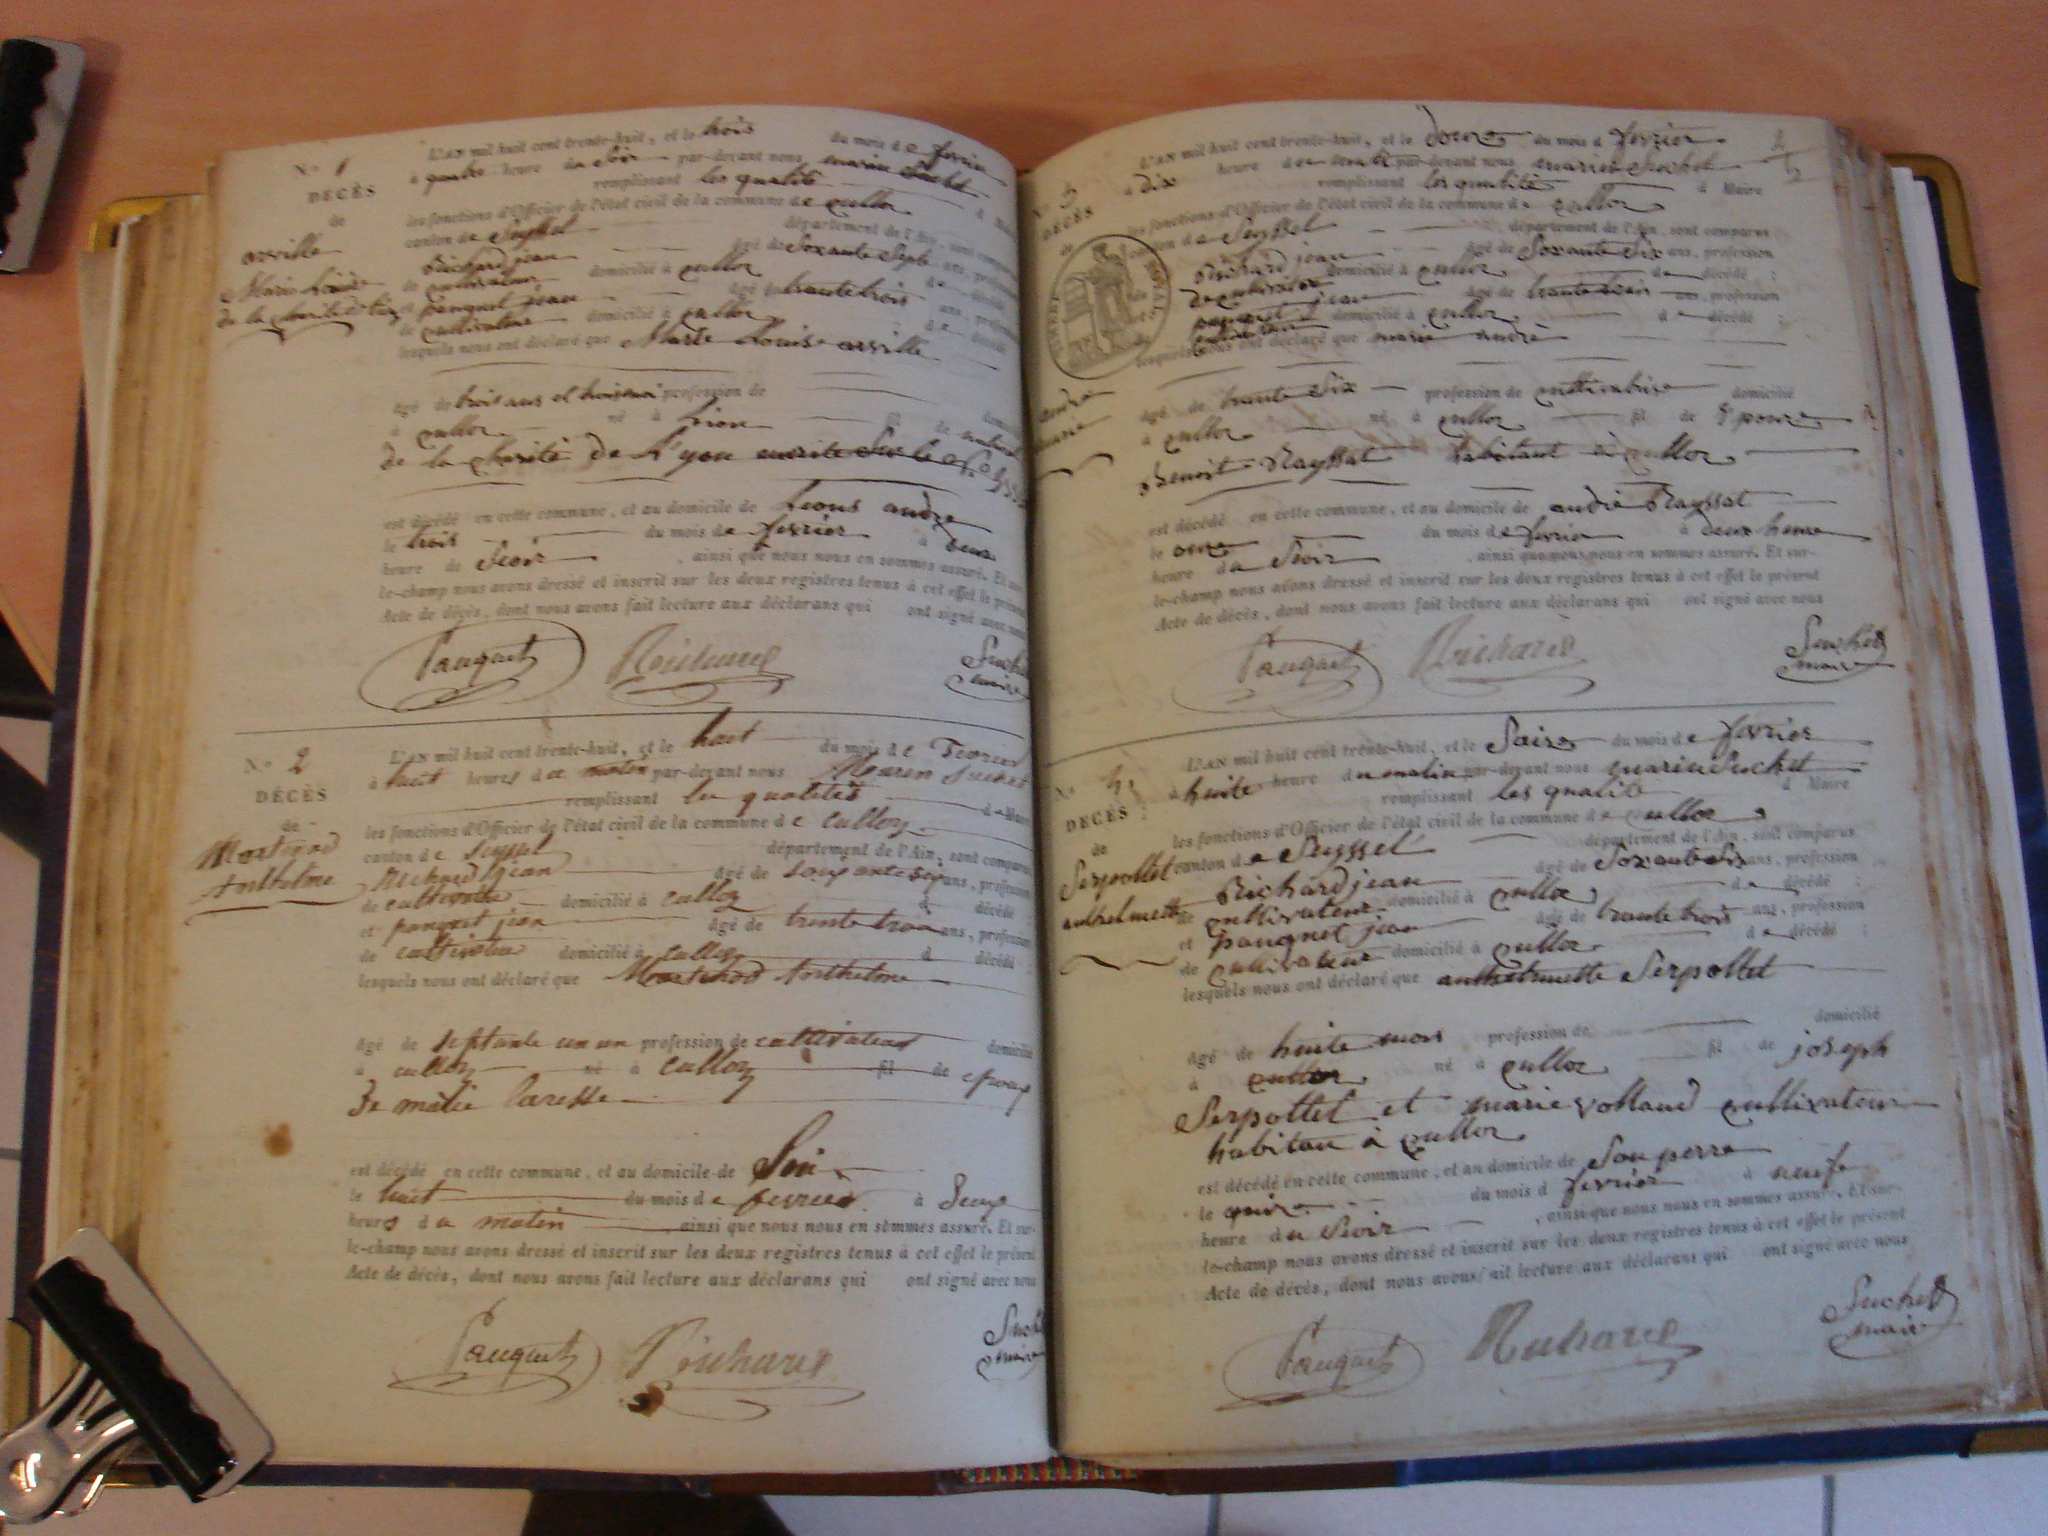 N.° 1
DÉCÈS
de
arville
Marie Louise
de la charité de
L'AN mil huit cent trente-huit, et le trois du mois de fevrier
à quatre heure du Soir par-devant nous marin Suchet
remplissant les qualité d
les fonctions d'Officier de l'état civil de la commune de culloz
canton de Seyssel département de l'Ain, sont comparus
Richard jean âgé de Soxante Sept ans, profes
de cultivateur domicilié à culloz d décédé
et pauquet jean âgé de trante trois ans, profes
de cultivateur domicilié à culloz d décédé
lesquels nous ont déclaré que Marie Louise arville
âgé de trois ans et trois moi profession de domi
à culloz né à Lion de
de la charité de L'yon
est décédé en cette commune, et au domicile de andre
le trois du mois de fevrier à deux
heure de Seoir , ainsi que nous nous en sommes assuré. Et sur-
le-champ nous avons dressé et inscrit sur les deux registres tenus à cet effet le présent
Acte de décès, dont nous avons fait lecture aux déclarans qui ont signé avec nous
Pauquet Richard Suchet
maire
N.° 2
DÉCÈS
de
Anthelme
L'AN mil huit cent trente-huit, et le huit du mois de Fevrier
à huit heures du matin par-devant nous Marin Suchet
remplissant les qualités de Maire
les fonctions d'Officier de l'état civil de la commune de culloz
canton de Seyssel département de l'Ain, sont comparus
Richard jean âgé de soixante six ans, profession
de cultivateur domicilié à culloz d décédé
et pauquet jean âgé de trente trois ans, profession
de cultivateur domicilié à culloz d décédé
lesquels nous ont déclaré que Anthelme
âgé de septante un an profession de cultivateur domicilié
à culloz né à culloz fil de epoux
De marie
est décédé en cette commune, et au domicile de Soi
le huit du mois de fevrier à Deux
heures du matin , ainsi que nous nous en sommes assuré. Et sur-
le-champ nous avons dressé et inscrit sur les deux registres tenus à cet effet le présent
Acte de décès, dont nous avons fait lecture aux déclarans qui ont signé avec nous
Pauquet Richard Suchet
maire
N.° 3
DÉCÈS
de
andré
marie
L'AN mil huit cent trente-huit, et le douze du mois d fevrier
à dix heure du matin par-devant nous marin Suchet
remplissant les qualité d Maire
les fonctions d'Officier de l'état civil de la commune de culloz
canton de Seyssel département de l'Ain, sont comparus
Richard jean âgé de Soxante Six ans, profession
de cultivateur domicilié à culloz d décédé ;
pauquet jean âgé de trante trois ans, profession
cultivateur domicilié à culloz d décédé ;
lesquels nous ont déclaré que marie andrè
âgé de trante Six profession de culltivatrise domicilié
à culloz né à culloz fil de Epouze
Benoit Rayssat habitant à culloz
est décédé en cette commune, et au domicile de andrè Rayssat
le onze du mois de fevrier à deux heure
heure du Soir , ainsi que nous nous en sommes assuré. Et sur-
le-champ nous avons dressé et inscrit sur les deux registres tenus à cet effet le présent
Acte de décès, dont nous avons fait lecture aux déclarans qui ont signé avec nous
Pauquet Richard Suchet
maire
N.° 4
DÉCÈS
de
Serpollet
anthelmette
L'AN mil huit cent trente-huit, et le Saize du mois de fevrier
à huite heure du matin par-devant nous marin Suchet
remplissant les qualité d Maire
les fonctions d'Officier de l'état civil de la commune de culloz
canton de Seyssel département de l'Ain, sont comparus
Richard jean âgé de Soxante Six ans, profession
de cultivateur domicilié à culloz d décédé ;
et pauquet jean âgé de trante trois ans, profession
de cultivateur domicilié à culloz d décédé ;
lesquels nous ont déclaré que anthelmette Serpollet
âgé de huite mois profession de domicilié
à culloz né à culloz fil de joseph
Serpollet et marie vollaud cullivateur
habitan à culloz
est décédé en cette commune, et au domicile de Son perre
le quinze du mois d fevrier à neufe
heure du Seoir , ainsi que nous nous en sommes assuré. Et sur-
le-champ nous avons dressé et inscrit sur les deux registres tenus à cet effet le présent
Acte de décès, dont nous avons fait lecture aux déclarans qui ont signé avec nous
Pauquet Richard Suchet
maire